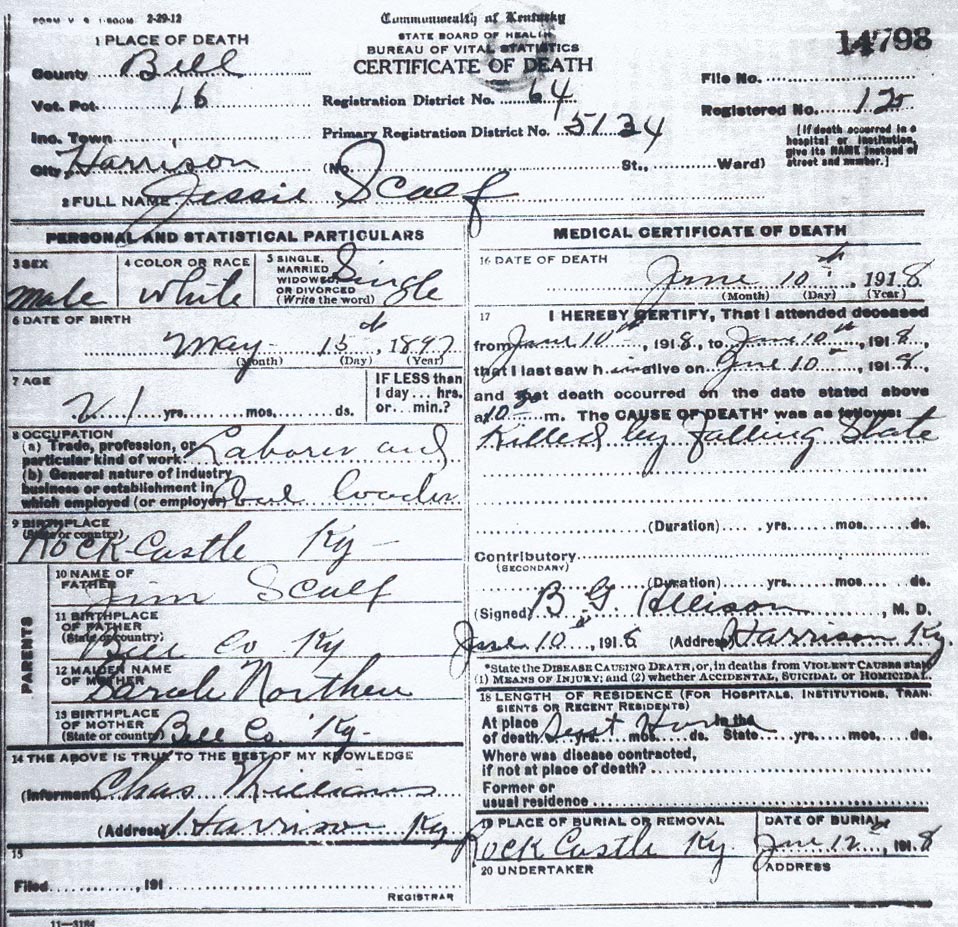 FORM V. S. 1-500M 2-29-12
Commonwealth of Kentucky
STATE BOARD OF HEALTH
BUREAU OF VITAL STATISTICS
CERTIFICATE OF DEATH
14798
1 PLACE OF DEATH
County Bell
Vot. Pct. 16
Inc. Town
City Harrison
Registration District No. 64
Primary Registration District No. 5134
(No. St., Ward)
File No.
Registered No. 125
[If death occurred in a hospital or institution, give its NAME instead of street and number.]
2 FULL NAME Jessie Scalf
PERSONAL AND STATISTICAL PARTICULARS
3 SEX male
4 COLOR OR RACE white
5 SINGLE, MARRIED WIDOWED OR DIVORCED (Write the word) Single
6 DATE OF BIRTH
May 15th, 1897
(Month) (Day) (Year)
7 AGE
21 yrs. mos. ds.
IF LESS than 1 day... hrs. or... min.?
8 OCCUPATION
(a) Trade, profession, or particular kind of work Laborer and
(b) General nature of industry business or establishment in which employed (or employer) Coal loader
9 BIRTHPLACE
(State or country) Rock Castle Ky
PARENTS
10 NAME OF FATHER Jim Scalf
11 BIRTHPLACE OF FATHER (State or country) Bell Co Ky
12 MAIDEN NAME OF MOTHER Sarah Northen
13 BIRTHPLACE OF MOTHER (State or country) Bell Co. Ky.
14 THE ABOVE IS TRUE TO THE BEST OF MY KNOWLEDGE
(Informant) Chas Williams
(Address) Harrison Ky
15
Filed, 191
REGISTRAR
11-3184
MEDICAL CERTIFICATE OF DEATH
16 DATE OF DEATH
June 10th, 1918
(Month) (Day) (Year)
17 I HEREBY CERTIFY, That I attended deceased
from June 10th, 1918, to June 10th, 1918,
that I last saw him alive on June 10th, 1918
and that death occurred on the date stated above
at 10 m. The CAUSE OF DEATH* was as follows:
Killed by Falling Slate
(Duration) yrs. mos. ds.
Contributory
(SECONDARY)
(Duration) yrs. mos. ds.
(Signed) B. G. Allison, M. D.
June 10th, 1918 (Address) Harrison Ky.
*State the DISEASE CAUSING DEATH, or, in deaths from VIOLENT CAUSES state
(1) MEANS OF INJURY; and (2) whether ACCIDENTAL, SUICIDAL or HOMICIDAL.
18 LENGTH OF RESIDENCE (FOR HOSPITALS, INSTITUTIONS, TRANSIENTS OR RECENT RESIDENTS)
At place of death yrs. mos. ds. In the State yrs. mos. ds.
Where was disease contracted,
if not at place of death?
Former or
usual residence
19 PLACE OF BURIAL OR REMOVAL
Rock Castle Ky
DATE OF BURIAL
June 12th, 1918
20 UNDERTAKER
ADDRESS